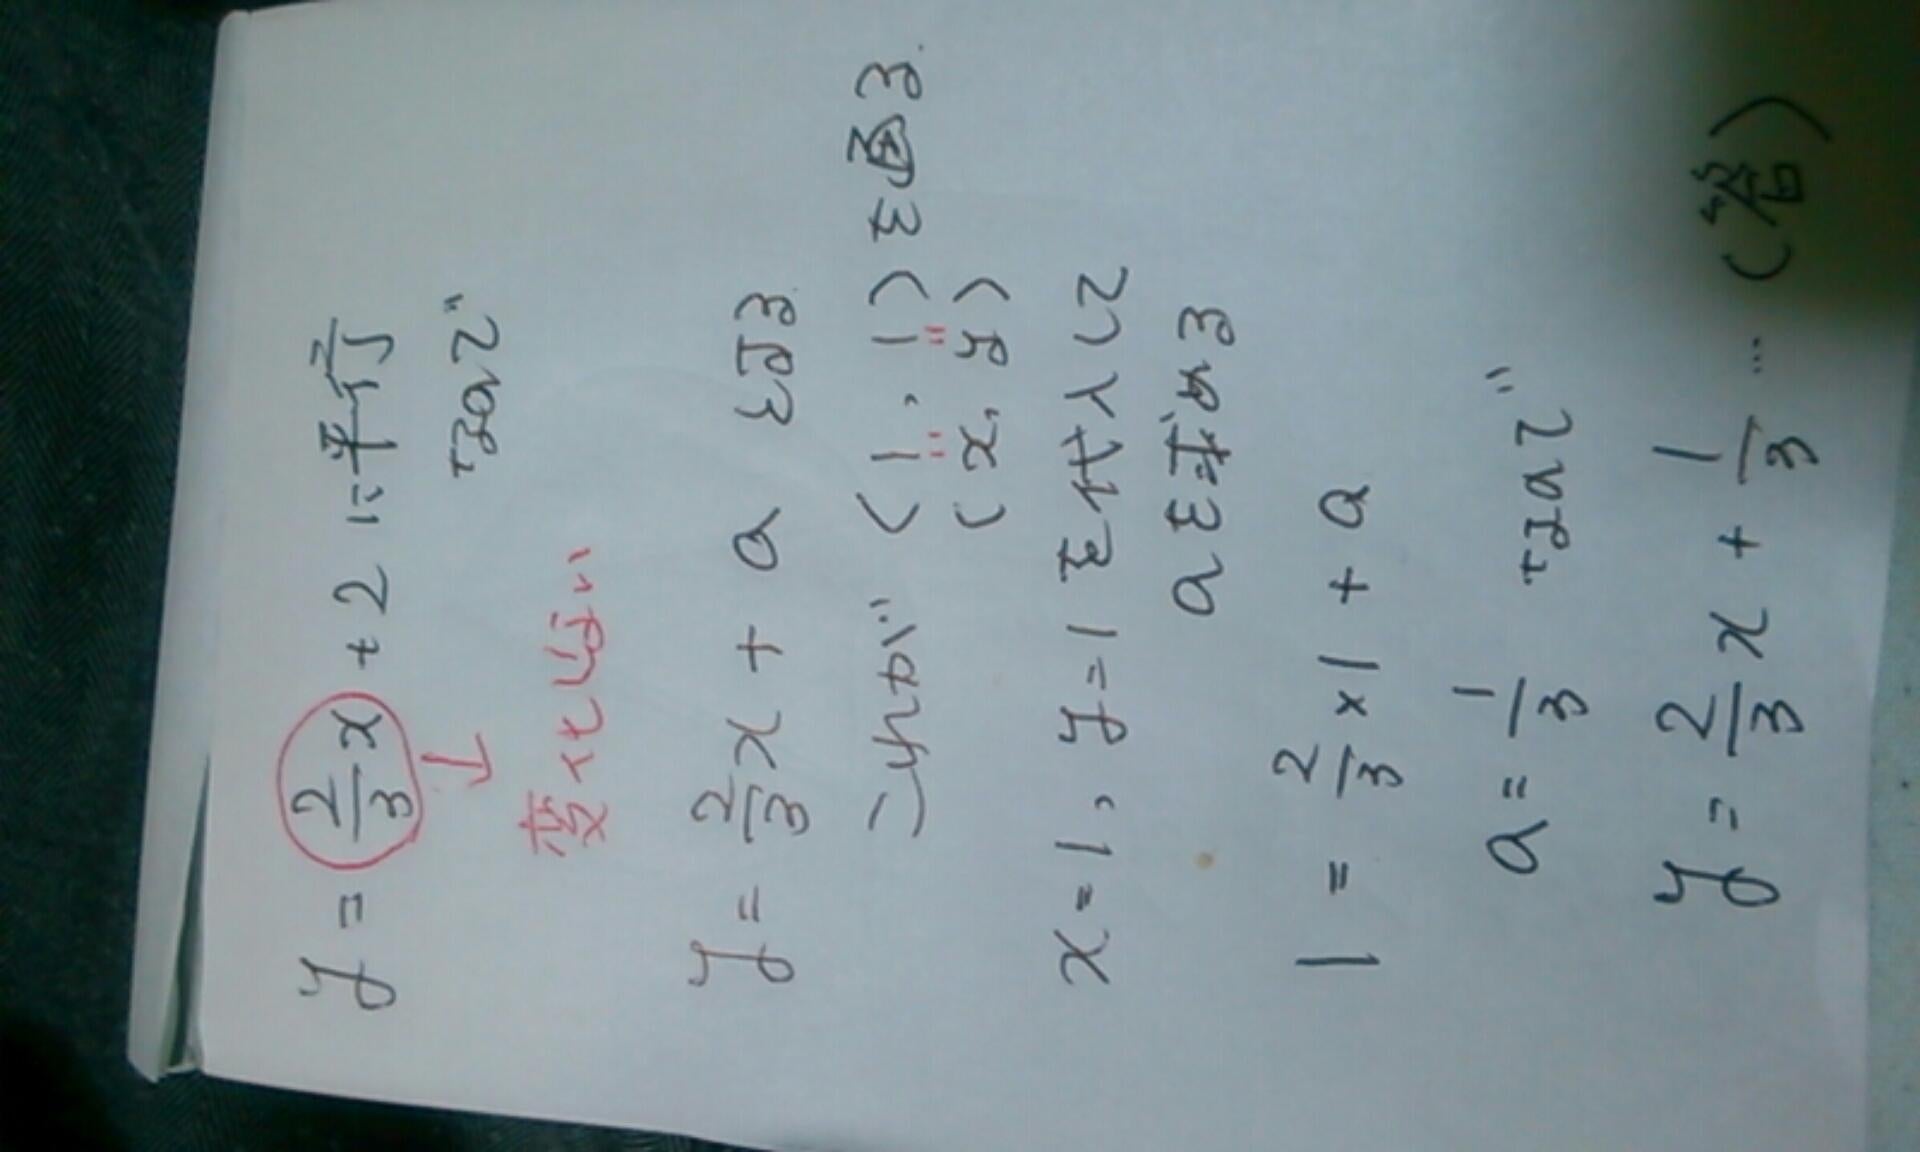 y = 2/3 x + 2 に平行
なので
↓
変化しない
y = 2/3 x + a となる
これが (1, 1) を通る.
(x, y)
x=1, y=1 を代入して
aを求める
1 = 2/3 ×1 + a
a = 1/3 なので
y = 2/3 x + 1/3 … (答)